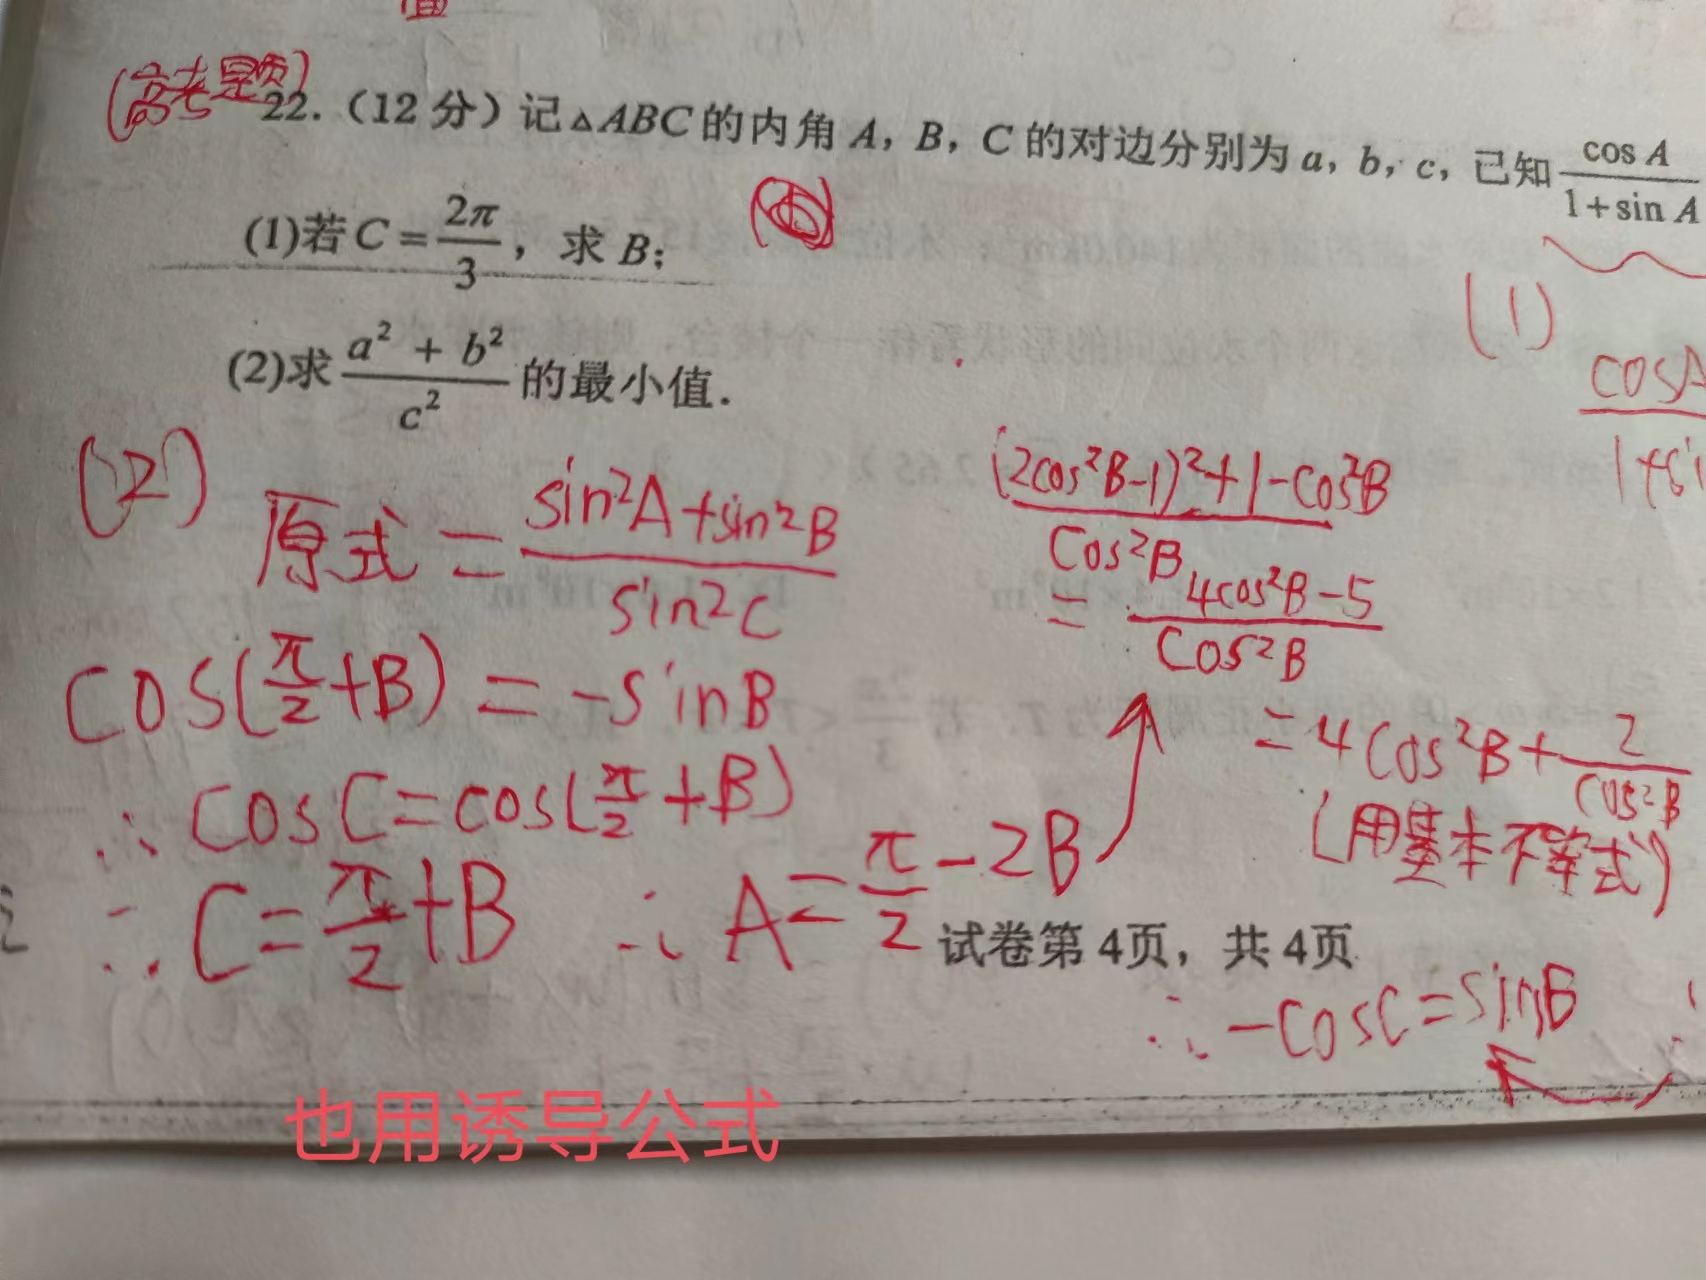 值
(高考题)
22.（12 分）记△ABC 的内角 A，B，C 的对边分别为 a，b，c，已知 cos A / 1+sin A
(1)若 C = 2π/3，求 B；
(2)求 a² + b² / c² 的最小值．
(1)
cosA
1+si
(2)
原式 = sin²A+sin²B / sin²C
cos(π/2+B) = -sinB
∴ cosC=cos(π/2+B)
∴ C=π/2+B ∴ A=π/2-2B
(2cos²B-1)²+1-cos²B / cos²B
= 4cos²B-5 / cos²B
=4cos²B+2/cos²B
(用基本不等式)
试卷第 4页，共 4页
∴ -cosC=sinB
也用诱导公式